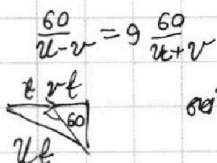 60/(u-v) = 9 60/(u+v)
t vt
60
ut